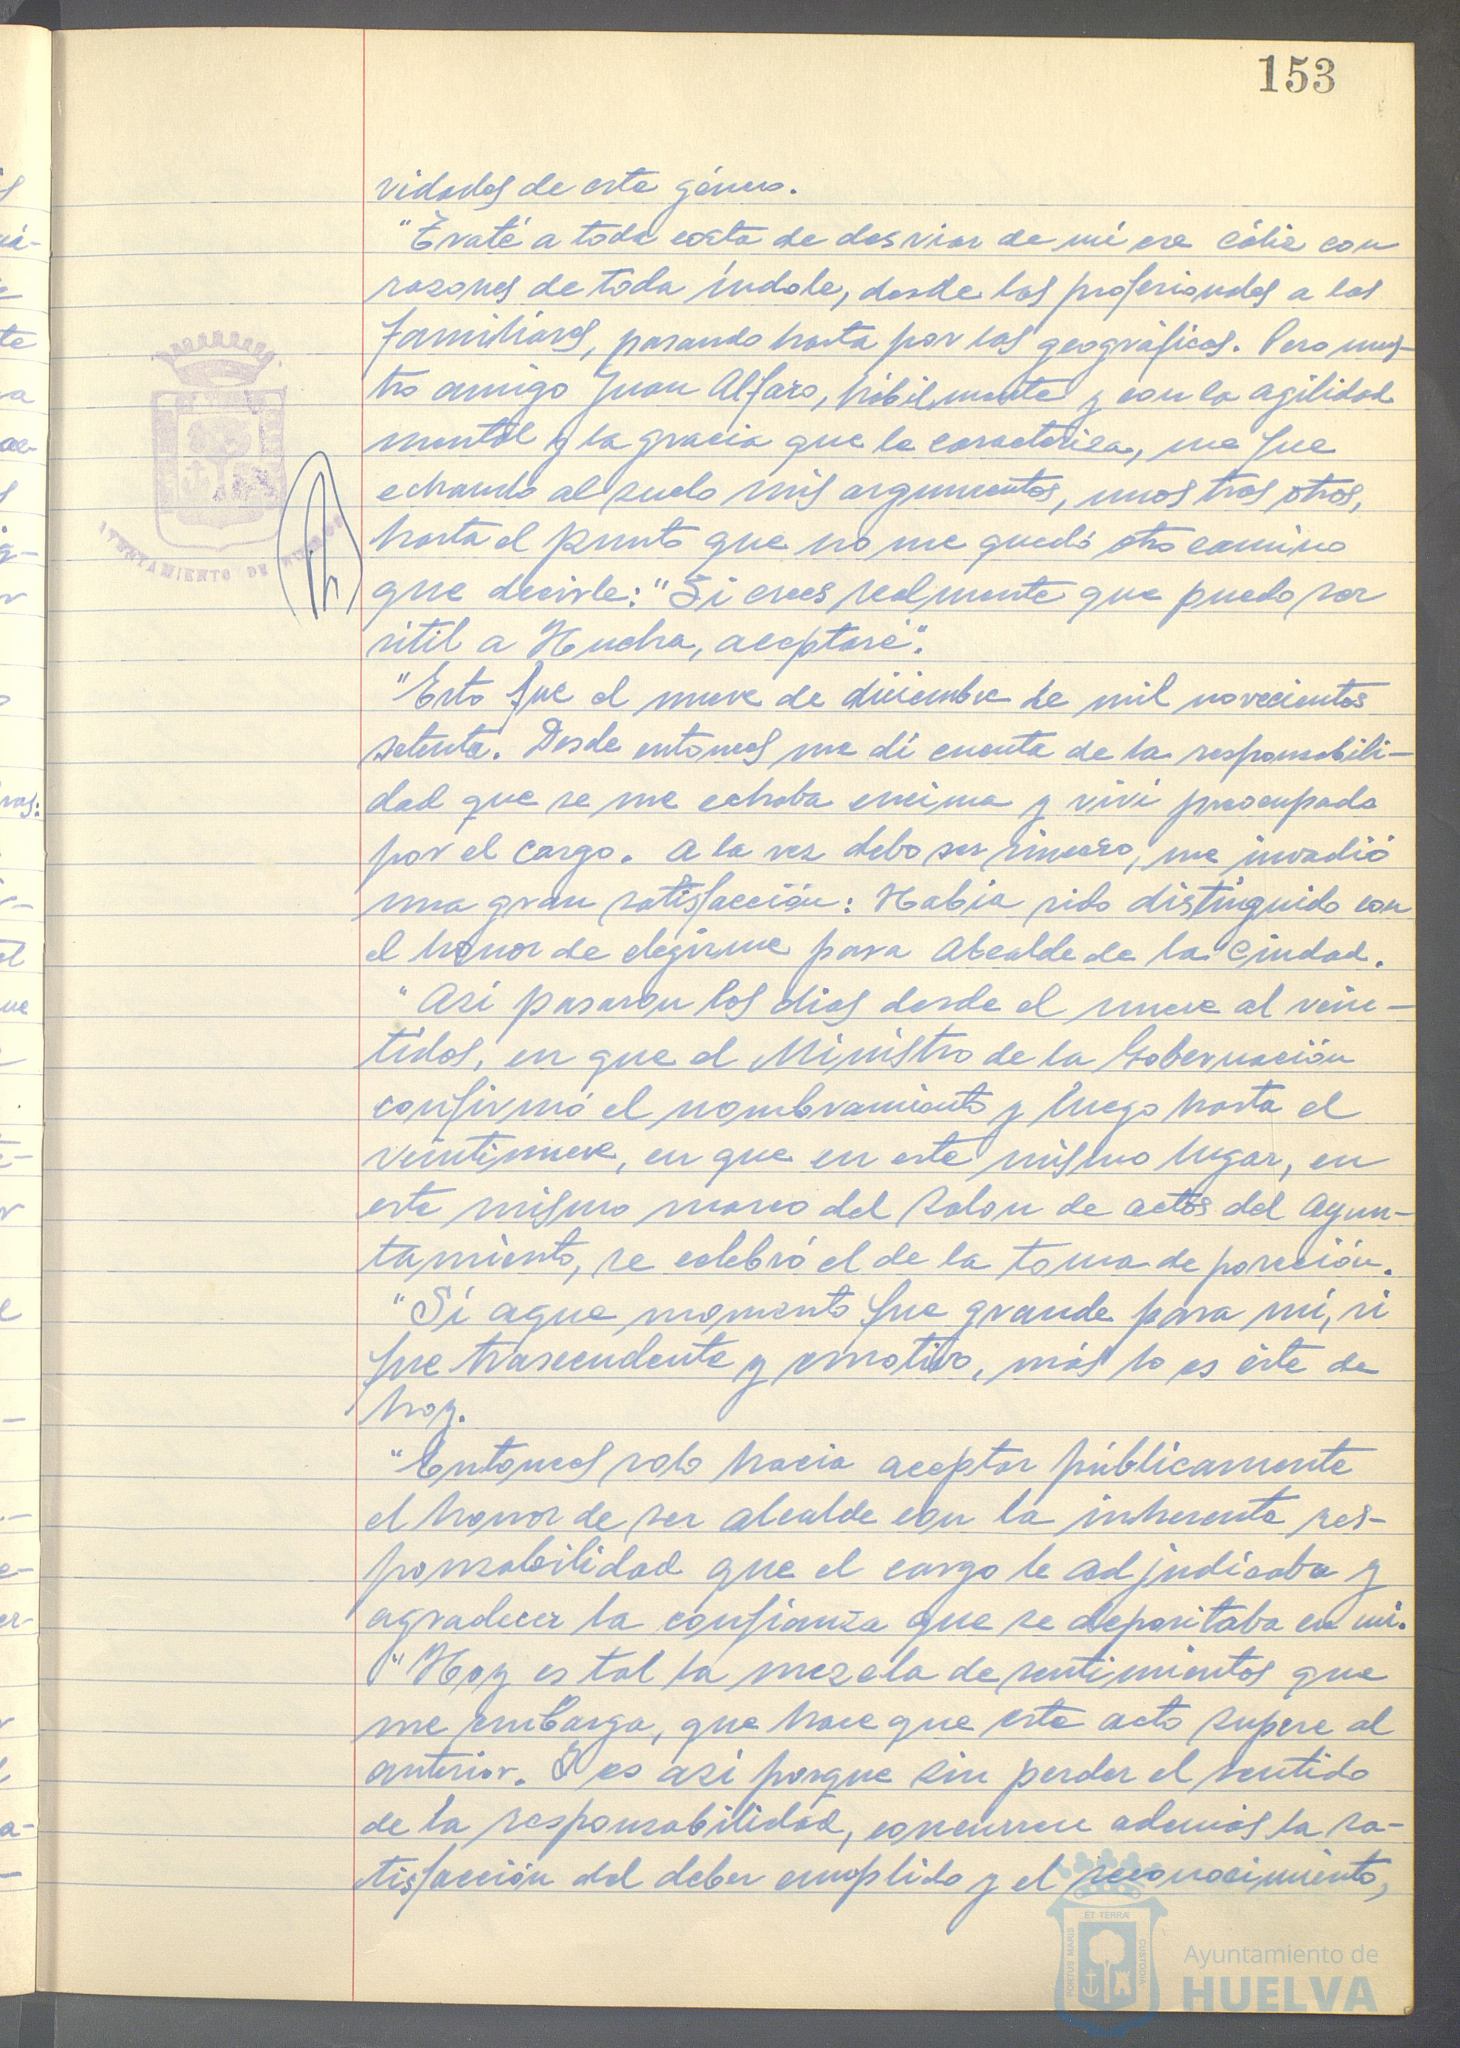 153
vidades de este género.
"Traté a toda costa de desviar de mí ese cáliz con
razones de toda índole, desde las profesionales a las
familiares, pasando hasta por las geográficas. Pero nues-
tro amigo Juan Alfaro, hábilmente y con la agilidad
mental y la gracia que le caracteriza, me fue
echando al suelo mis argumentos, unos tras otros,
hasta el punto que no me quedó otro camino
que decirle: "Si crees realmente que puedo ser
útil a Huelva, aceptaré".
"Esto fue el nueve de diciembre de mil novecientos
setenta. Desde entonces me di cuenta de la responsabili-
dad que se me echaba encima y viví preocupado
por el cargo. A la vez debo ser sincero, me invadió
una gran satisfacción: Había sido distinguido con
el honor de elegirme para Alcalde de la Ciudad.
"Así pasaron los días desde el nueve al vein-
tidos, en que el Ministro de la Gobernación
confirmó el nombramiento y luego hasta el
veintinueve, en que en este mismo lugar, en
este mismo marco del salon de actos del Ayun-
tamiento, se celebró el de la toma de posesión.
"Si aque momento fue grande para mí, si
fue trascendente y emotivo, más lo es éste de
hoy.
"Entonces solo hacia aceptar públicamente
el honor de ser alcalde con la inherente res-
ponsabilidad que el cargo le adjudicaba y
agradecer la confianza que se depositaba en mi.
"Hoy es tal la mezcla de sentimientos que
me embarga, que hace que este acto supere al
anterior. Y es así porque sin perder el sentido
de la responsabilidad, concurren además la sa-
tisfacción del deber cumplido y el reconocimiento,
AYUNTAMIENTO DE HUELVA
PORTUS MARIS ET TERRAE CUSTODIA
Ayuntamiento de
HUELVA